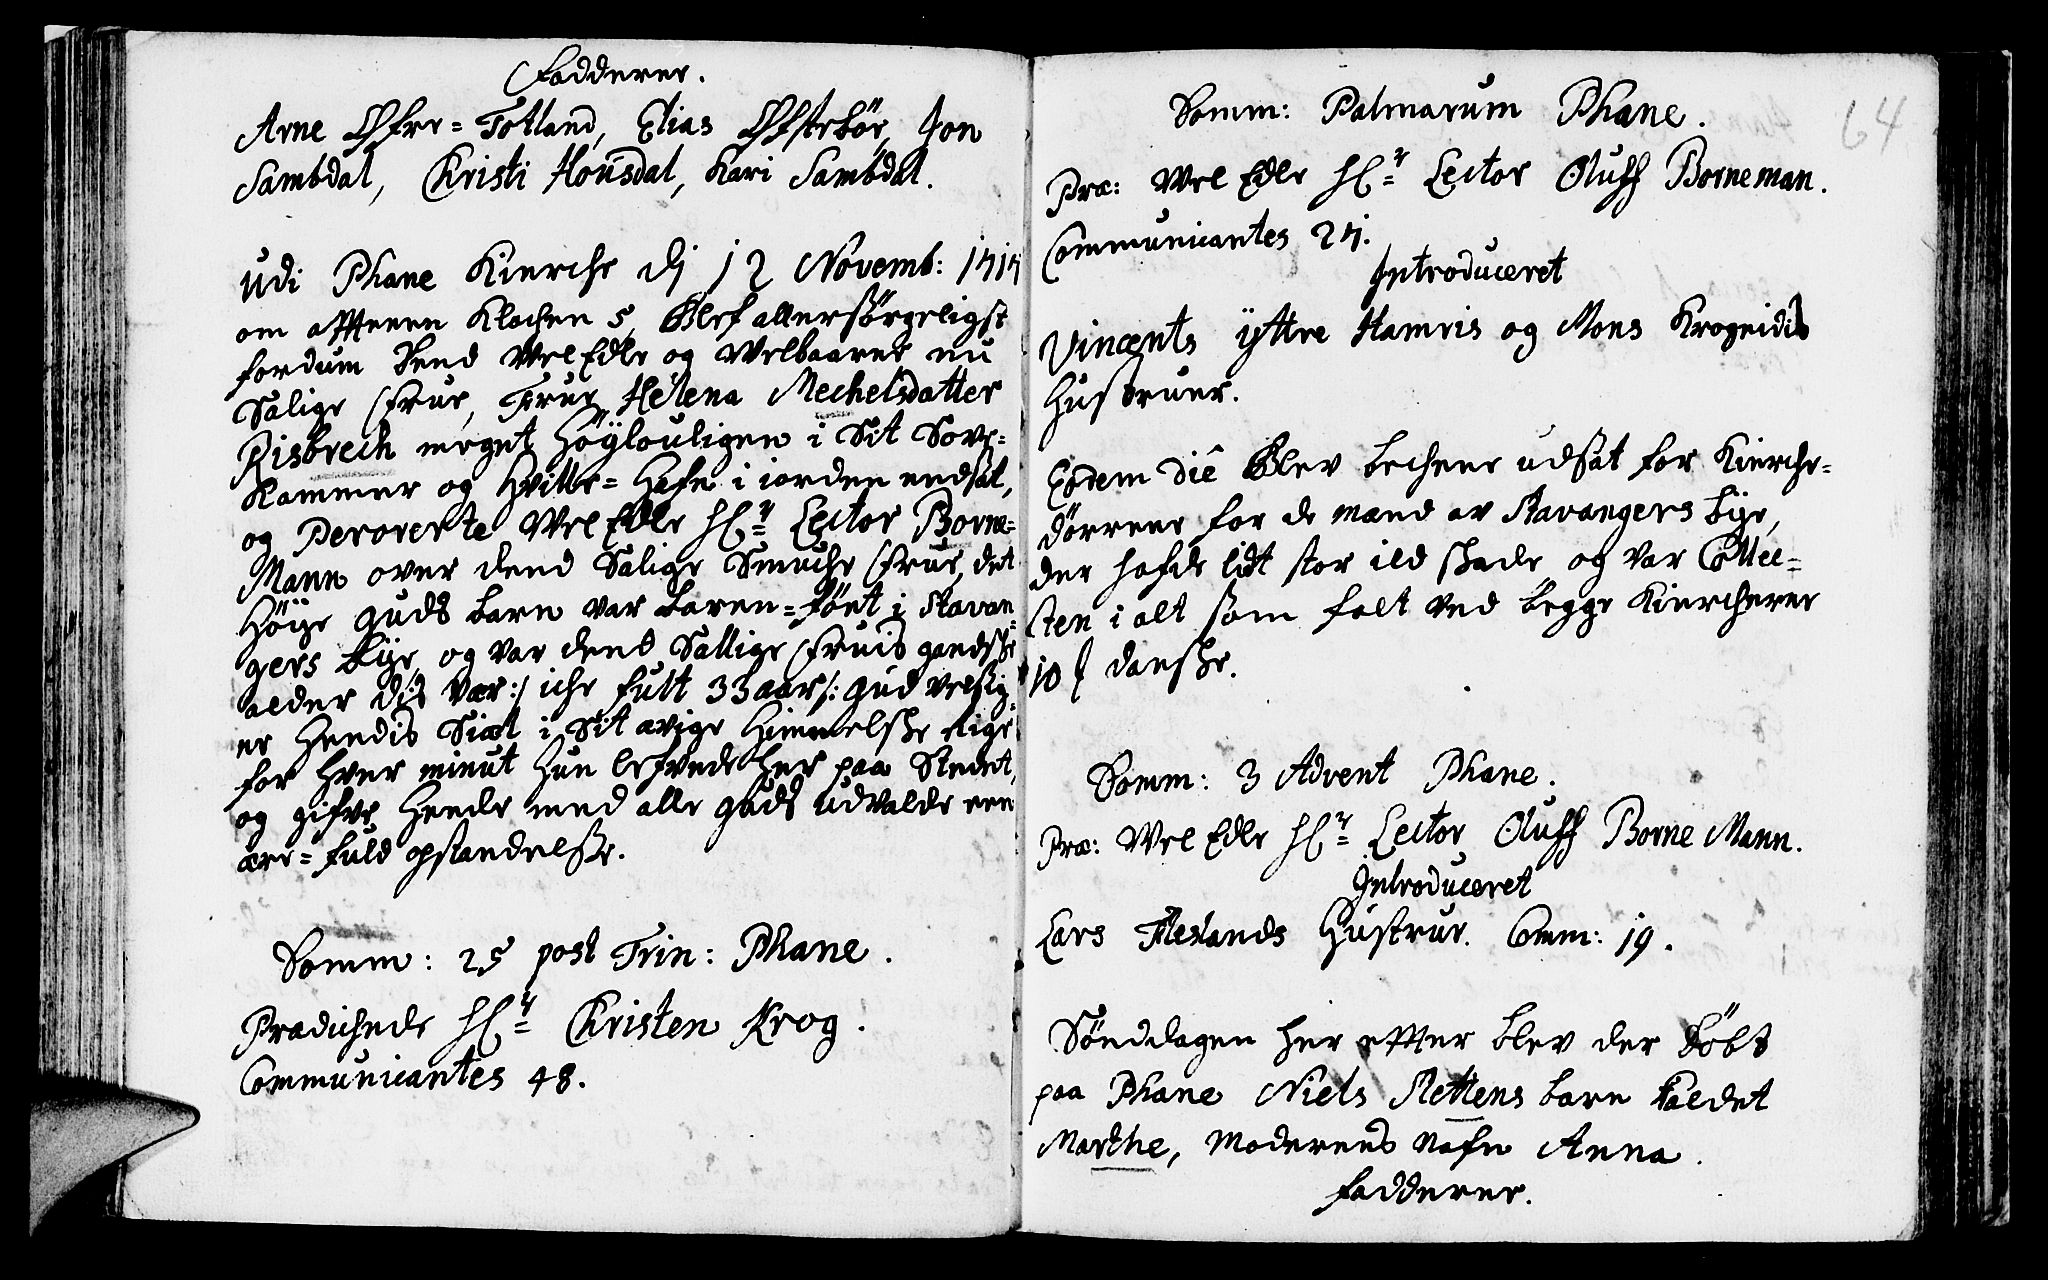 Fadderer.
Arne Øfre=Totland, Elias Øfstebör, Jon
Sambdal, Christi Housdal, Kari Sambdal.
Udi Phane Kierche dj 12 Novemb: 1717
om afftenen Klochen 5, Blef allersörgeligst
fordum Dend Wel Edle og Welbaarne nu
Salige Frue, Frue Helena Mechelsdatter
Risbrech meget Höÿlouligen i Sit Sove=
Kammer og Hville=Hafn i iorden nedsat,
og Perorerte Wel Edle Hr= Lector Borne=
Mann over dend Salige Smuche Frue, det
Höÿe Guds barn var baaren=föet i Stavan=
gers bÿe, og var dend Sallige Fruis gandske
alder dis vær :/ iche fult 33 aar /: Gud velsig=
ne Hendis Siæl i Sit ævige Himmelske Rige
for hver minut Hun lefvede her paa Stedet,
og gifve Hende med alle Guds udvalde een
ære=fuld opstandelse.
Domm: 25 post Trin: Phane.
Prædichede Hr= Christen Krog.
Communicantes 48.
64
Domm: Palmarum Phane.
Præ: Wel Edle Hr= Lector Oluff Borneman.
Communicantes 27.
Introduceret
Vincents ÿttre Hamris og Mons Krogeidis
Hustruer.
Eodem die Blev bechene udsat for Kierche=
dörrene for de mænd av Stavangers bÿe,
der hafde lidt stor ild skade og var Collec=
ten i alt som falt ved begge Kiercherne
10 ß danske.
Domm: 3 Advent Phane.
Præ: Wel Edle Hr= Lector Oluff Borne Mann.
Introduceret
Lars Fleslands Hustrue. Comm: 19.
Sönddagen her effter blev der Döbt
paa Phane Niels Slettens barn kaldet
Marthe, Moderens Nafn Anna.
Fadderer.